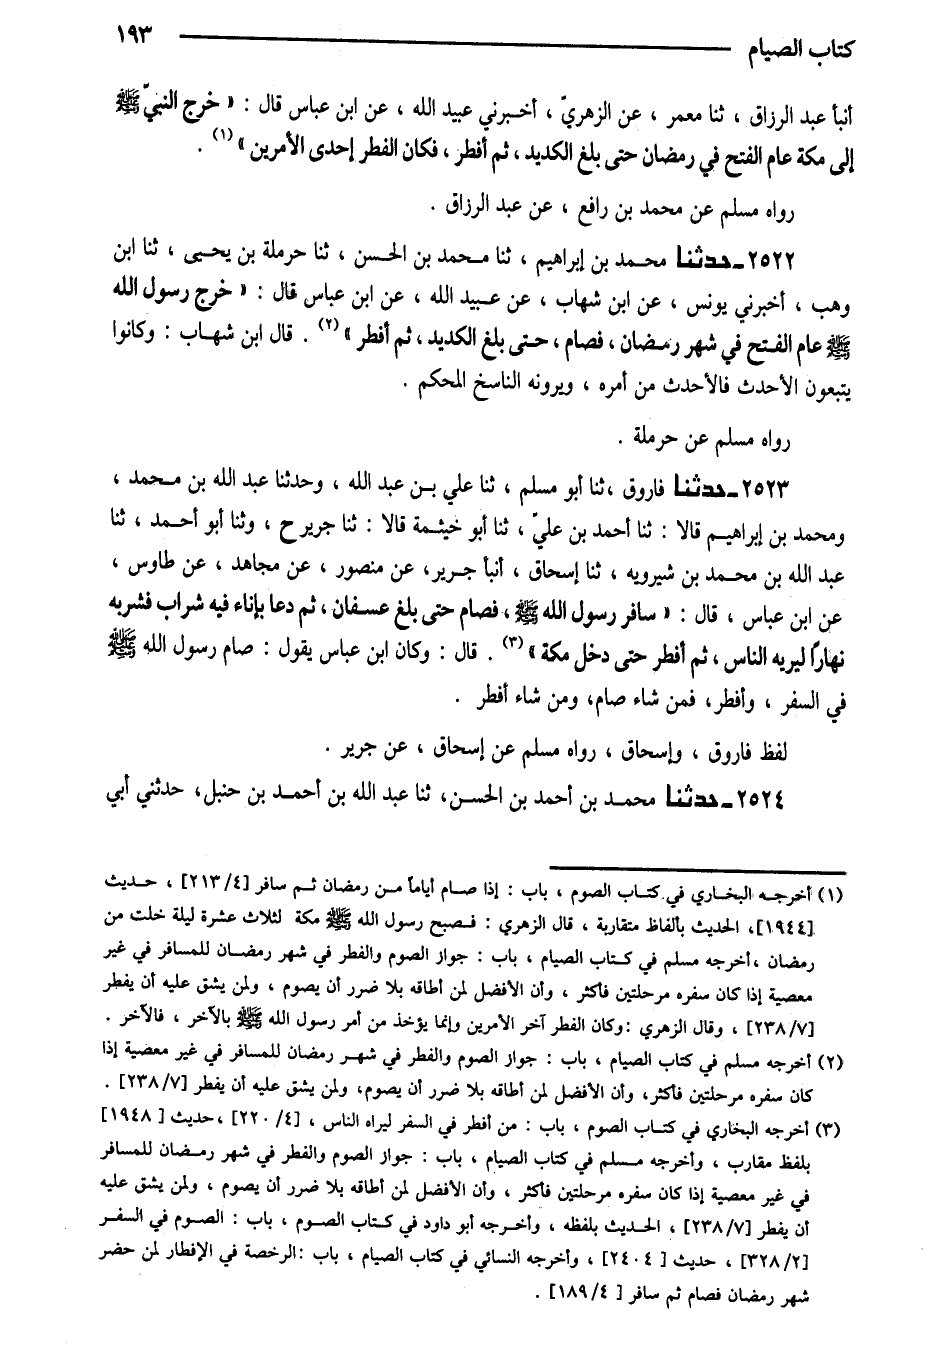 كتاب الصيام ١٩٣
أنبأ عبد الرزاق ، ثنا معمر ، عن الزهريّ ، أخبرني عبيد الله ، عن ابن عباس قال : « خرج النبيّ ﷺ
إلى مكة عام الفتح في رمضان حتى بلغ الكديد ، ثم أفطر ، فكان الفطر إحدى الأمرين » (١) .
رواه مسلم عن محمد بن رافع ، عن عبد الرزاق .
٢٥٢٢ـ حدثنا محمد بن إبراهيم ، ثنا محمد بن الحسن ، ثنا حرملة بن يحيى ، ثنا ابن
وهب ، أخبرني يونس ، عن ابن شهاب ، عن عبيد الله ، عن ابن عباس قال : « خرج رسول الله
ﷺ عام الفتح في شهر رمضان ، فصام ، حتى بلغ الكديد ، ثم أفطر » (٢) . قال ابن شهاب : وكانوا
يتبعون الأحدث فالأحدث من أمره ، ويرونه الناسخ المحكم .
رواه مسلم عن حرملة .
٢٥٢٣ـ حدثنا فاروق ،ثنا أبو مسلم ، ثنا علي بن عبد الله ، وحدثنا عبد الله بن محمد ،
ومحمد بن إبراهيم قالا : ثنا أحمد بن عليّ ، ثنا أبو خيثمة قالا : ثنا جرير ح ، وثنا أبو أحمد ، ثنا
عبد الله بن محمد بن شيرويه ، ثنا إسحاق ، أنبأ جرير، عن منصور ، عن مجاهد ، عن طاوس ،
عن ابن عباس ، قال : « سافر رسول الله ﷺ ، فصام حتى بلغ عسفان ، ثم دعا بإناء فيه شراب فشربه
نهارًا ليريه الناس ، ثم أفطر حتى دخل مكة » (٣) . قال : وكان ابن عباس يقول : صام رسول الله ﷺ
في السفر ، وأفطر، فمن شاء صام، ومن شاء أفطر .
لفظ فاروق ، وإسحاق ، رواه مسلم عن إسحاق ، عن جرير .
٢٥٢٤ـ حدثنا محمد بن أحمد بن الحسن، ثنا عبد الله بن أحمد بن حنبل، حدثني أبي
(١) أخرجه البخاري في كتاب الصوم ، باب : إذا صام أياماً من رمضان ثم سافر [٢١٣/٤] ، حديث
[١٩٤٤]، الحديث بألفاظ متقاربة ، قال الزهري : فصبح رسول الله ﷺ مكة لثلاث عشرة ليلة خلت من
رمضان ،أخرجه مسلم في كتاب الصيام ، باب : جواز الصوم والفطر في شهر رمضان للمسافر في غير
معصية إذا كان سفره مرحلتين فأكثر ، وأن الأفضل لمن أطاقه بلا ضرر أن يصوم ، ولمن يشق عليه أن يفطر
[٢٣٨/٧] ، وقال الزهري :وكان الفطر آخر الأمرين وإنما يؤخذ من أمر رسول الله ﷺ بالآخر ، فالآخر .
(٢) أخرجه مسلم في كتاب الصيام ، باب : جواز الصوم والفطر في شهر رمضان للمسافر في غير معصية إذا
كان سفره مرحلتين فأكثر، وأن الأفضل لمن أطاقه بلا ضرر أن يصوم، ولمن يشق عليه أن يفطر [٢٣٨/٧] .
(٣) أخرجه البخاري في كتاب الصوم ، باب : من أفطر في السفر ليراه الناس ، [٢٢٠/٤] ،حديث [١٩٤٨]
بلفظ مقارب ، وأخرجه مسلم في كتاب الصيام ، باب : جواز الصوم والفطر في شهر رمضان للمسافر
في غير معصية إذا كان سفره مرحلتين فأكثر ، وأن الأفضل لمن أطاقه بلا ضرر أن يصوم ، ولمن يشق عليه
أن يفطر [٢٣٨/٧] ، الحديث بلفظه ، وأخرجه أبو داود في كتاب الصوم ، باب : الصوم في السفر
[٣٢٨/٢] ، حديث [٢٤٠٤] ، وأخرجه النسائي في كتاب الصيام ، باب :الرخصة في الإفطار لمن حضر
شهر رمضان فصام ثم سافر [١٨٩/٤] .